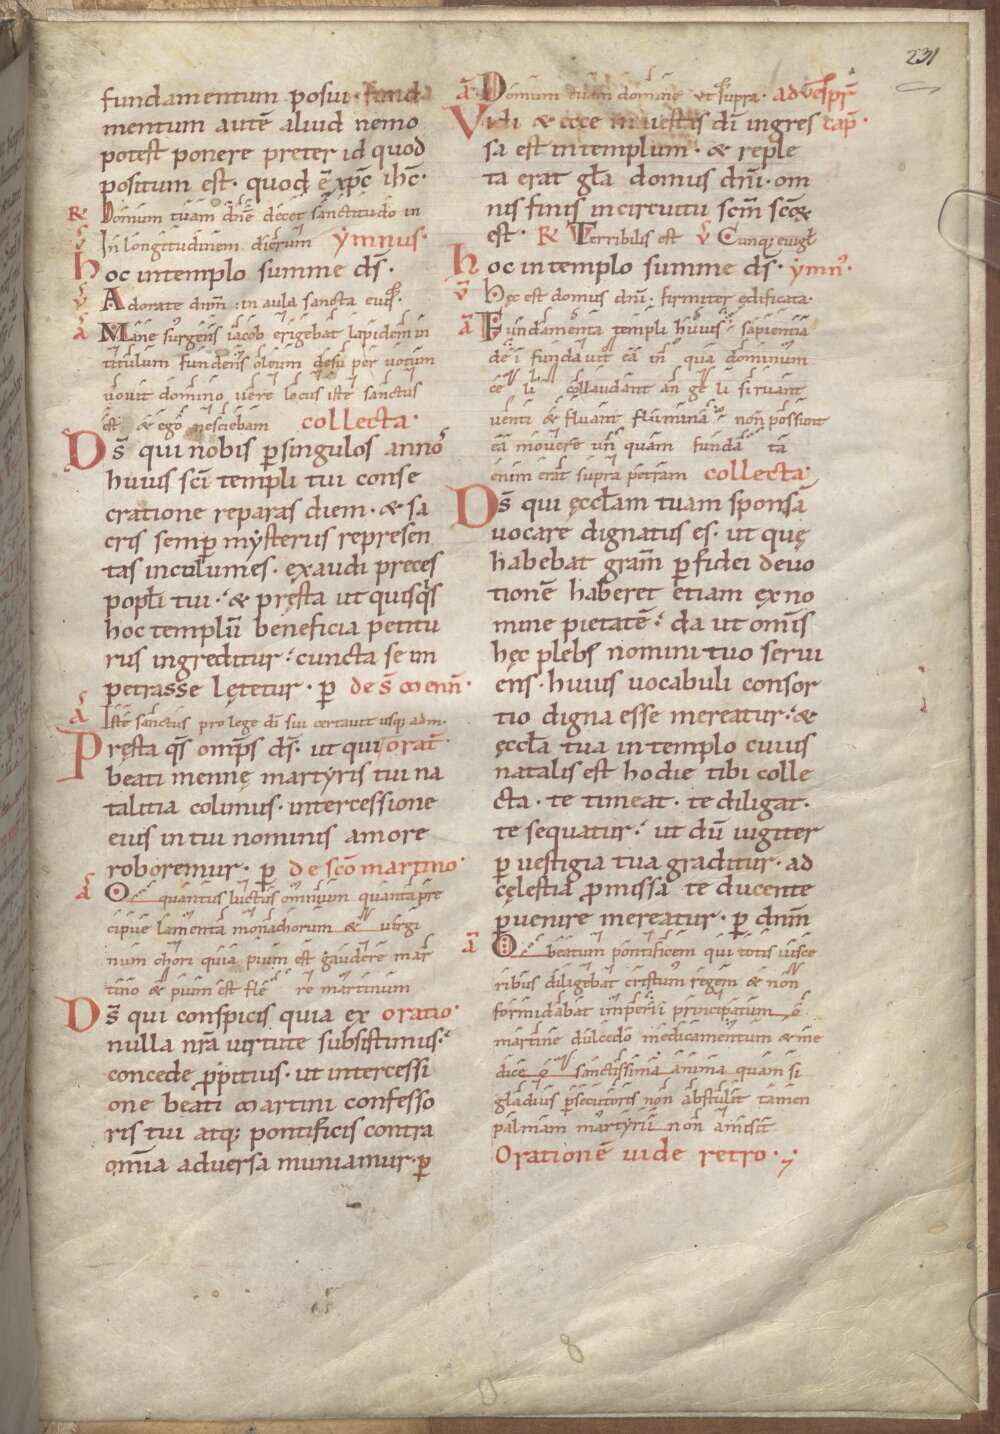 231
fundamentum posui · funda
mentum autē aliud nemo
potest ponere preter id quod
positum est · quod ē xp̄c ihc̄ ·
R̄ Domum tuam dn̄e decet sanctitudo in
v̄ In longitudinem dierum ẏmnus ·
Hoc in templo summe ds̄ ·
v̄ Adorate dnm̄ : in aula sancta eius
ā Mane surgens iacob erigebat lapidem in
titulum fundens oleum desup̲ per uotum
uouit domino uere locus iste sanctus
est & ego nesciebam collecta ·
Ds̄ qui nobis ꝑ singulos anno
huius sc̄i templi tui conse
crationẹ reparas diem · & sa
cris semꝑ mẏsteriis represen
tas incolumes · exaudi preces
popłi tui · & pręsta ut quisq̄s
hoc templū beneficia petitu
rus ingreditur · cuncta se im
petrasse lętetur · ꝑ de s̄ menn̄ ·
ā Iste sanctus pro lege dī sui certauit usq; ad m ·
Pręsta qs̄ omp̄s ds̄ · ut qui orat̄ ·
beati mennę martẏris tui na
talitia colimus · intercessione
eius in tui nominis amore
roboremur · ꝑ de sc̄o martino ·
ā O quantus luctus omnium quanta pre
cipue lamenta monachorum & virgi
num chori quia pium est gaudere mar
tino & pium est fle re martinum
Ds̄ qui conspicis quia ex oratio ·
nulla nr̄a uirtute subsistimus ·
concede ꝓpitius · ut intercessi
one beati martini confesso
ris tui atq; pontificis contra
om̄ia aduersa muniamur · ꝑ
ā Domum tuam domine ut supra · ad vesp̄r̄
Vidi & ecce maiestas dī ingres cap̄ ·
sa est in templum · & reple
ta erat gła domus dn̄i · om
nis finis in circuitu scm̄ scōꝝ
est · R̄ Terribilis est v̄ Cumq; euigł
Hoc in templo summe ds̄ · ẏmn̄ ·
v̄ Hęc est domus dn̄i · firmiter ędificata ·
ā Fundamenta templi huius sapientia
de i fundauit eā in qua dominum
ce li collaudant an ge li si ruant
uenti & fluant flumina non possunt
eā mouere un quam funda ta
enim erat supra petram collecta ·
Ds̄ qui ęccłam tuam sponsā
uocare dignatus es · ut quę
habebat gram̄ ꝑ fidei deuo
tionē haberet etiam ex no
mine pietatē · da ut omīs
hęc plebs nomini tuo serui
ens · huius uocabuli consor
tio digna esse mereatur · &
ęccła tua in templo cuius
natalis est hodie tibi colle
cta · te timeat · te diligat ·
te sequatur · ut dū iugiter
ꝑ uestigia tua graditur · ad
cęlestia ꝓmissa te ducente
ꝑuenire mereatur · ꝑ dnm̄
ā O beatum pontificem qui totis uisce
ribus diligebat cristum regem & non
formidabat imperii principatum o
martine dulcedo medicamentum & me
dice o sanctissima anima quam si
gladius ꝑsecutoris non abstulit tamen
palmam martẏrii non amisit
Orationē uide retro ·